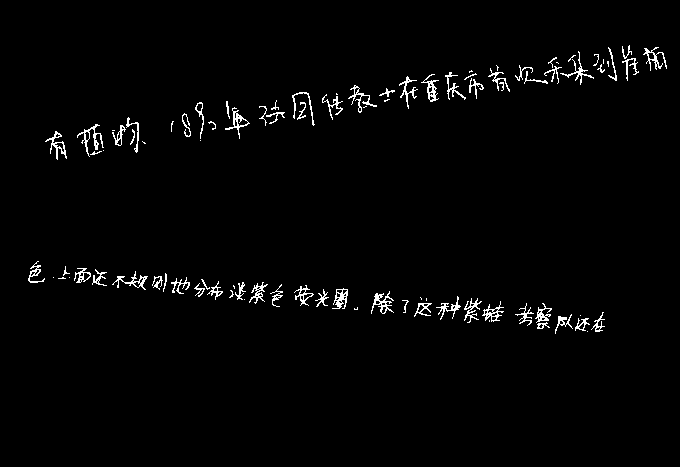 有植物、1892年法国传教士在重庆市首次采集到崖柏
色.上面还不规则地分布淡紫色荧光圈。除了这种紫蛙考察队还在